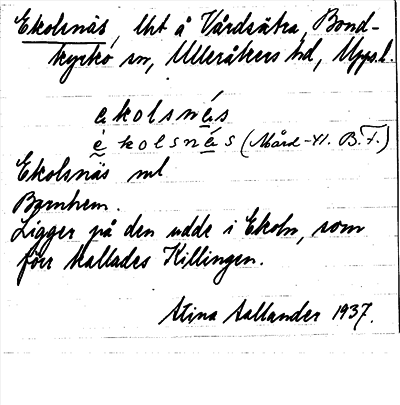 Ekolsnäs, lht å Vårdsätra, Bond-
kyrko sn, Ulleråkers hd, Upps. l.
ekolsnẹs
è kolsnás (Mård-Yl. B.F.)
Ekolsnäs ml
Barnhem.
Ligger på den udde i Ekoln, som
förr kallades Killingen.
Stina Sallander 1937.